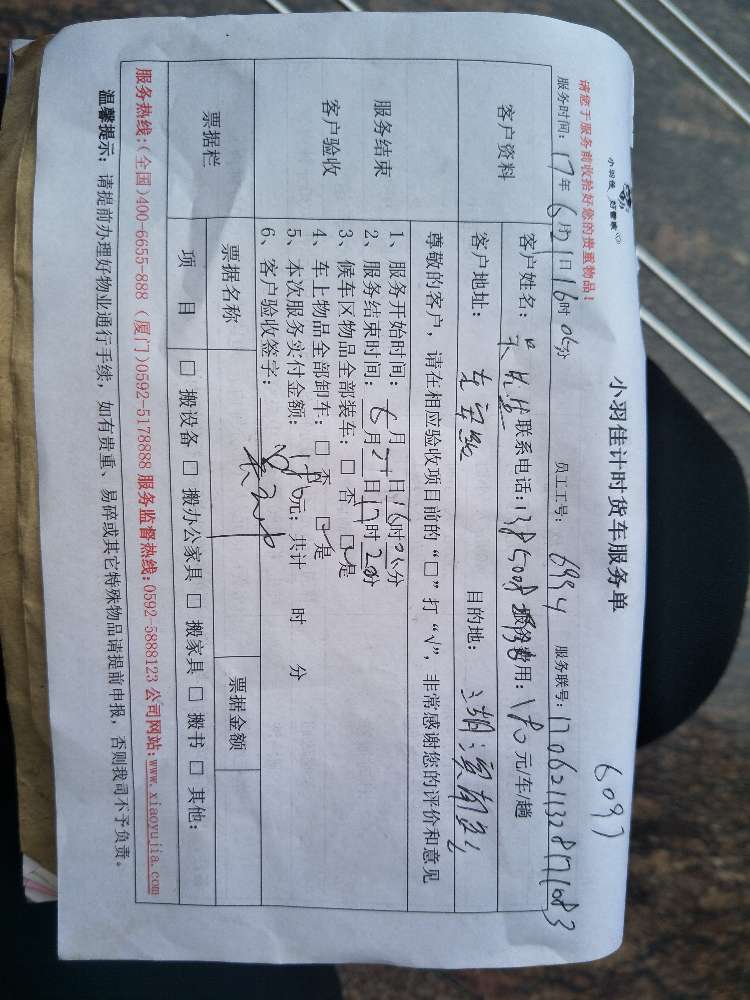 请您于服务前收拾好您的贵重物品！
小羽佳
6097
小羽佳计时货车服务单
服务时间：17年6月21日16时 分 员工工号：6994 服务联号：
客户资料 客户姓名： 联系电话： 服务费用：180元/车/趟
客户地址： 目的地：
尊敬的客户，请在相应验收项目前的“□”打“√”，非常感谢您的评价和意见
服务结束
客户验收
1、服务开始时间： 月 日16时 分
2、服务结束时间：6月21日17时20分
3、候车区物品全部装车：□否 □是
4、车上物品全部卸车：□否 □是
5、本次服务实付金额：180元；共计 时 分
6、客户验收签字：
票据栏 票据名称 票据金额
项 目 □搬设备 □搬办公家具 □搬家具 □搬书 □其他：
服务热线：(全国)400-6655-888 (厦门)0592-5178888 服务监督热线：0592-5888123 公司网站：www.xiaoyujia.com
温馨提示：请提前办理好物业通行手续，如有贵重、易碎或其它特殊物品请提前申报，否则我司不予负责。